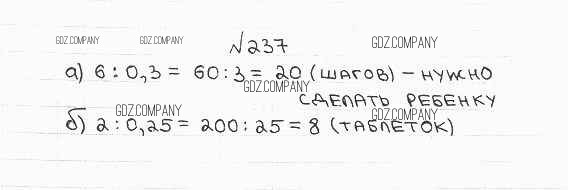 GDZ.COMPANY GDZ.COMPANY №237 GDZ.COMPANY
а) 6 : 0,3 = 60 : 3 = 20 (шагов) – нужно
GDZ.COMPANY
сделать ребенку
GDZ.COMPANY GDZ.COMPANY
б) 2 : 0,25 = 200 : 25 = 8 (таблеток)